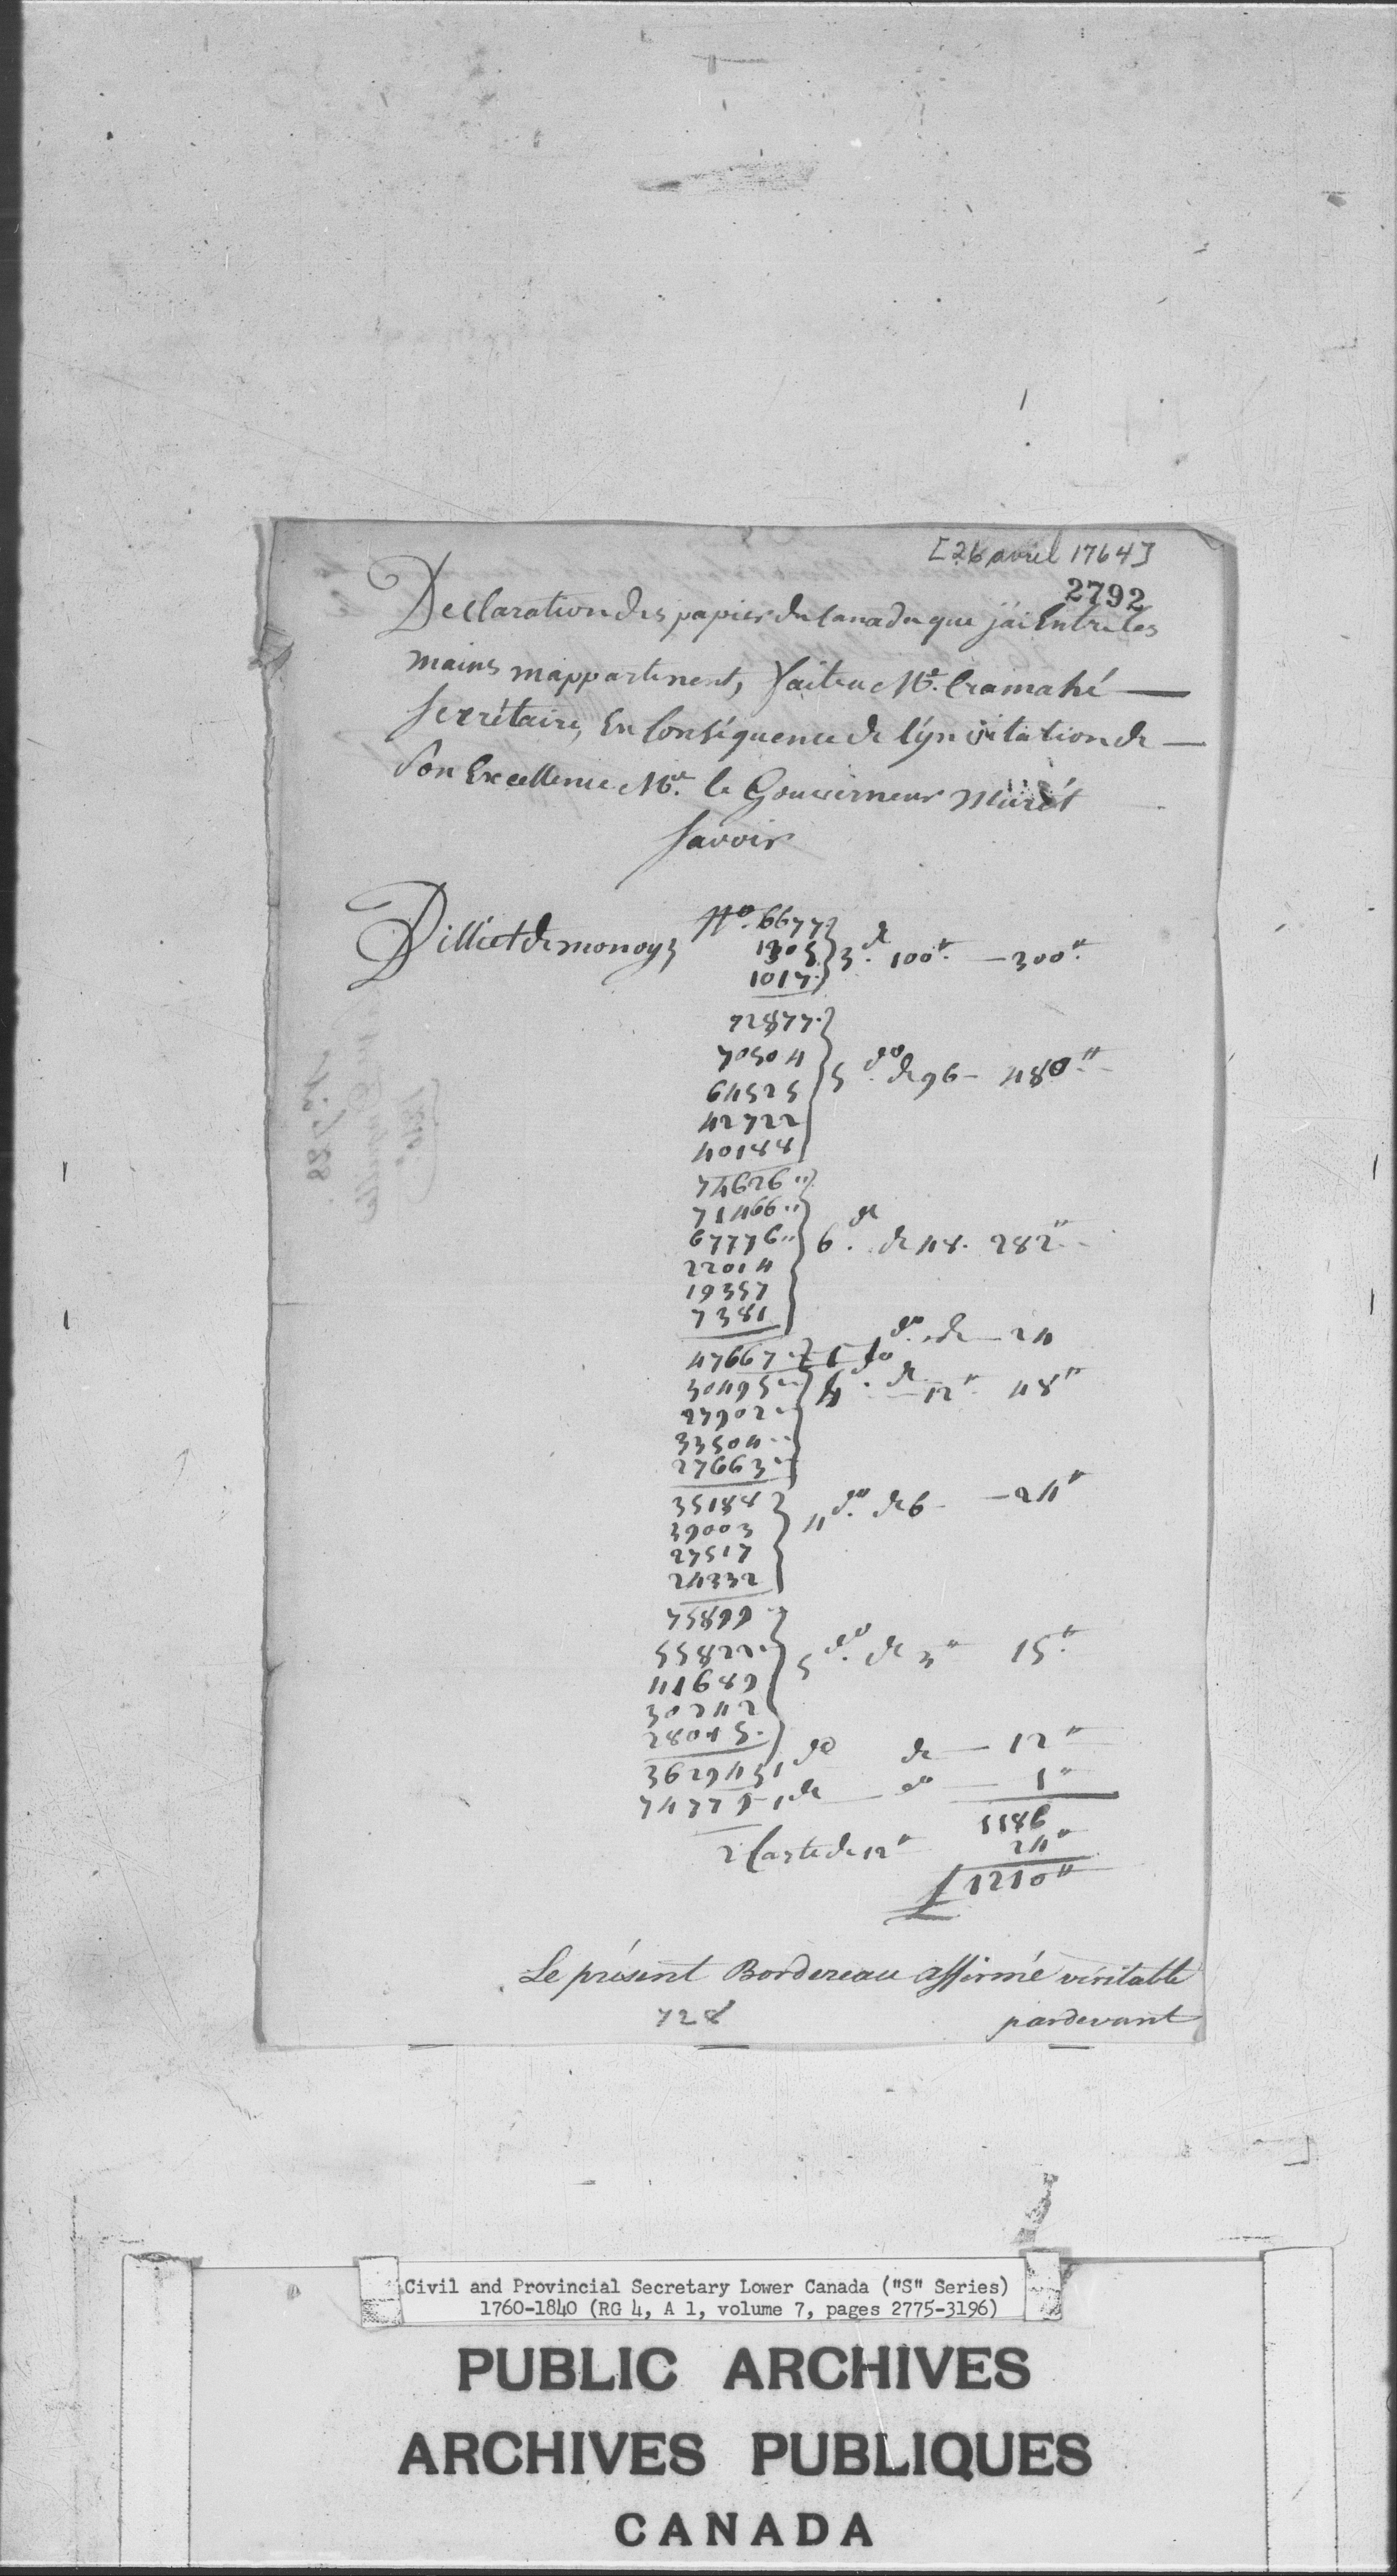 [26 avril 1764]
2792
Declaration des papier du Canada que j'ai Entre les
mains m'appartenent, faite a Mr. Cramahé —
Secrétaire, En Conséquence de l'ynvitation de —
Son Excellence Mr. le Gouverneur Murêt
Savoir
Billiet de monoye No. 6677
1305 } 3. de 100". — 300".
1017.
72877.
70504
64525 } 5 do. de 96 — 480".
42722
40188
74626"
71466"
67776" } 6. de de 48. 282".
22014
19357
7381
47667 } 1 do. de — 24
30495 } 4. de — 12" 48"
27902
33504
27663
35188 } 4 do. de 6 — 24"
39003
27517
24332
75899
55822 } 5 do. de 3" 15".
41689
30242
28045.
362943 1 do de — 12"
74779 1 de — do — 1"
1186
2 Carte de 12" 24"
£ 1210"
Le présent Bordereau affirmé véritable
728 pardevant
No. 728
Civil and Provincial Secretary Lower Canada ("S" Series)
1760-1840 (RG 4, A 1, volume 7, pages 2775-3196)
PUBLIC ARCHIVES
ARCHIVES PUBLIQUES
CANADA